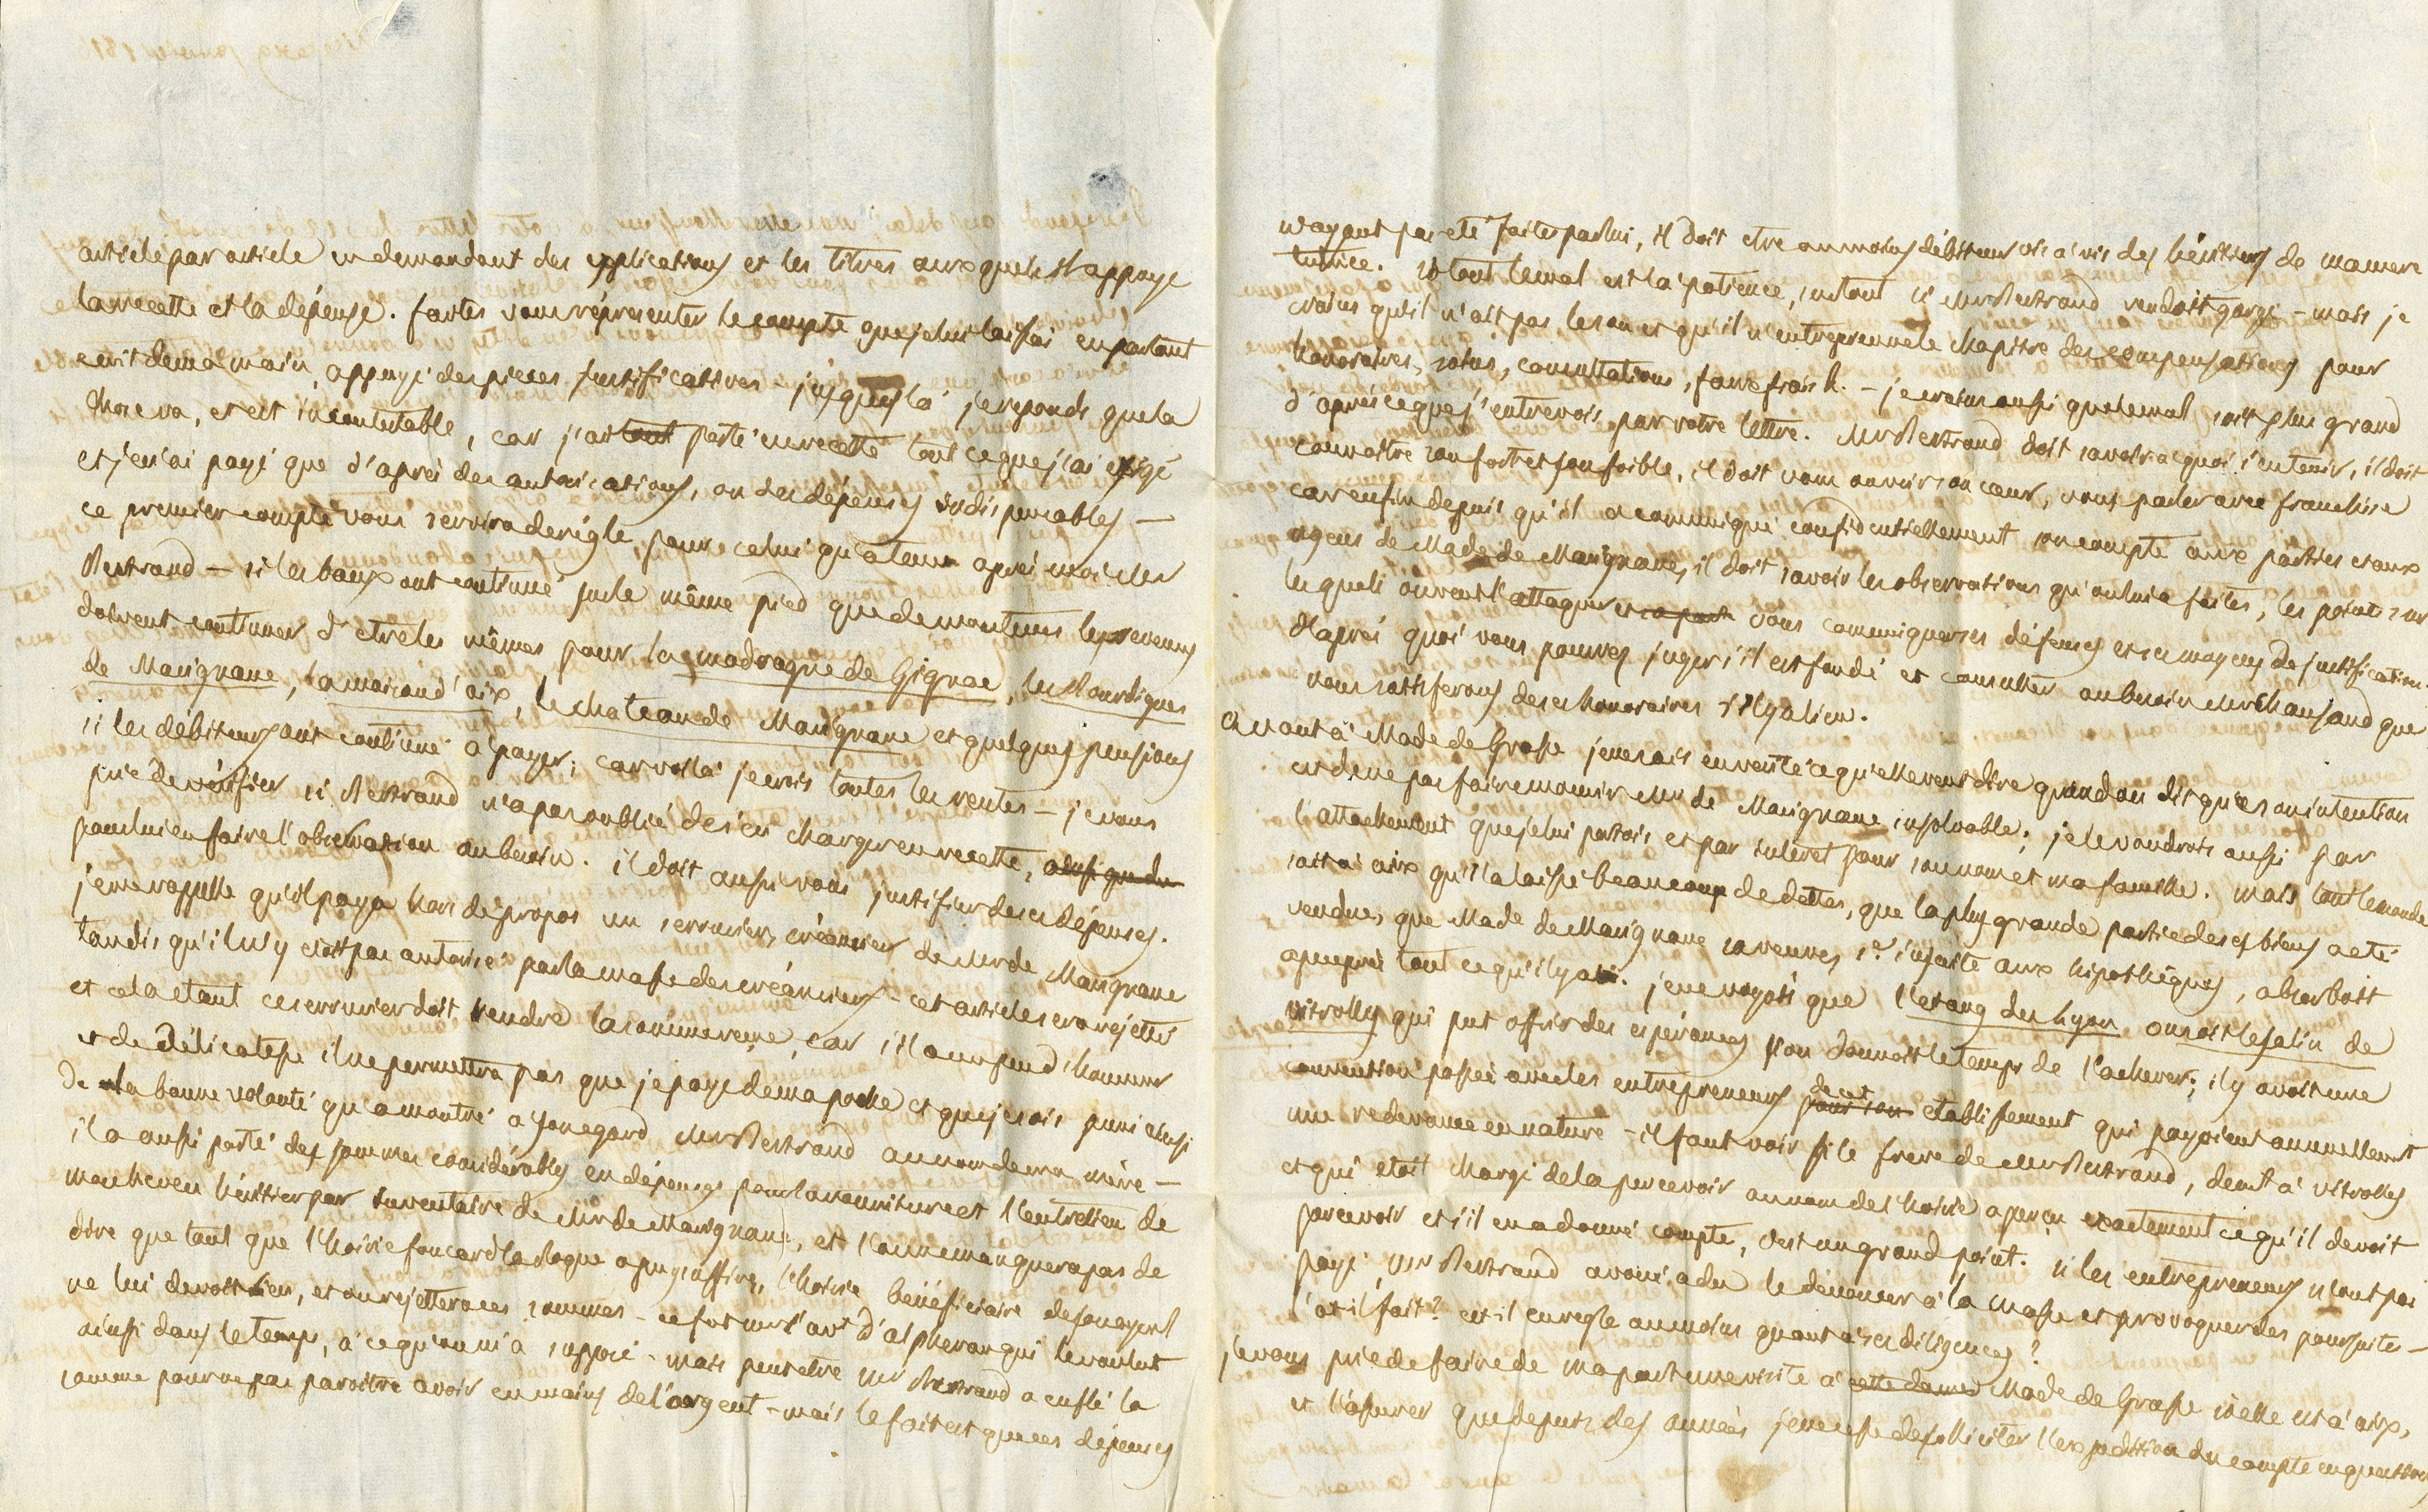 article par article en demandant des explications et les titres aux quels il appuye
la recette et la dépense. faites vous réprésenter le compte que je lui laissai en partant
ecrit de ma main, appuyé des pieces justificatives - jusques là je reponds que la
chose va, et est incontestable, car j'ai tout porté en recette tout ce que j'ai exigé
et je n'ai payé que d'après des autorisations, ou des dépenses indispensables -
ce premier compte vous servira de régle, pour celui qu'a tenu après moi Mr
Bertrand - si les baux ont continué sur le même pied que de mon tems les revenus
doivent continuer d'etre les mêmes pour la madrague de Gignac, les Bourdigues
de Marignane, la maison d'aix, le chateau de Marignane et quelques pensions
si les débiteurs ont continué à payer; car voilà je crois toutes les rentes - je vous
prie de vérifier si Bertrand n'a pas oublié de s'en charger en recette, ainsi que du
pour lui en faire l'observation au besoin. il doit aussi vous justifier de ses dépenses.
je me rappelle qu'il paya hors de propos un serrurier, créancier de Mr de Marignane
tandis qu'il n'y etoit pas autorisé par la masse des créanciers - cet article sera rejetté
et cela etant ce serrurier doit rendre la somme reçue, car s'il a un peu d'honneur
et de délicatesse il ne permettra pas que je paye de ma poche et que je sois puni ainsi
de la bonne volonté qu'a montré a son egard Mr Bertrand au nom de ma mère -
il a aussi porté des sommes considérables en dépenses pour la nourriture et l'entretien de
mon neveu héritier par inventaire de Mr de Marignane, et l'on ne manquera pas de
dire que tant que l'hoirie a pu y suffire, l'hoirie bénéficiaire de son ayeul
ne lui devoit rien, et on rejettera ces sommes - ce fut Mr l'avt d'alpheran qui le voulut
ainsi dans le temps, à ce qu'on m'a supposé - mais peut etre Mr Bertrand a enflé la
somme pour ne pas paroitre avoir en mains de l'argent - mais le fait est que ces dépenses
n'ayant pas eté faites par lui, il doit etre au moins débiteur vis à vis des héritiers de ma mere
tutrice. si tout le mal est là patience, surtout si Mr Bertrand rendoit gorge - mais je
crains qu'il n'ait pas le sou et qu'il n'entreprenne le chapitre des compensations pour
honoraires, soins, consultations, faux frais &. - je crains aussi que le mal soit plus grand
d'après ce que j'entrevois par votre lettre. Mr Bertrand doit savoir a quoi s'en tenir, il doit
connoitre son fort et son foible, il doit vous ouvrir son cœur, vous parler avec franchise
car enfin depuis qu'il a communiqué confidentiellement son compte aux parties et aux
agens de Made de Marignane, il doit savoir les observations qu'on lui a faites, les points sur
les quels on veut l'attaquer et vous communiquer ses défenses et ses moyens de justification.
d'après quoi vous pouvez juger s'il est fondé et consulter au besoin Mr Chansaud que
nous satisferons de ses honoraires s'il y a lieu.
Quant à Made de Grasse je ne sais en verité ce qu'elle veut dire quand on dit que son intention
est de ne pas faire mourir Mr de Marignane insolvable; je le voudrois aussi par
l'attachement que je lui portois et par intéret pour son nom et ma famille. mais tout le monde
sait à aix qu'il a laissé beaucoup de dettes, que la plus grande partie de ses biens a eté
vendue, que Made de Marignane sa veuve, inscrite aux hipothéques, absorboit
a peu près tout ce qu'il y a. je ne voyois que l'etang du Lyon ou soit le salin de
vitrolles qui put offrir des espérances si on donnoit le temps de l'achever; il y avoit une
convention passée avec les entrepreneurs pour son de cet etablissement qui payoient annuellement
une redevance en nature - il faut voir si le frere de Mr Bertrand, demt à vitrolles
et qui etoit chargé de la percevoir au nom de l'hoirie a perçu exactement ce qu'il devoit
percevoir et s'il en a donné compte, c'est un grand point. si les entrepreneurs n'ont pas
payé, Mr Bertrand avoué a du le dénoncer à la masse et provoquer des poursuites -
l'a-t-il fait? est-il en regle au moins quant à ses diligences?
je vous prie de faire de ma part une visite à cette dame Made de Grasse si elle est à aix,
et l'assurer que depuis des années je ne cesse de solliciter l'expédition du compte en question